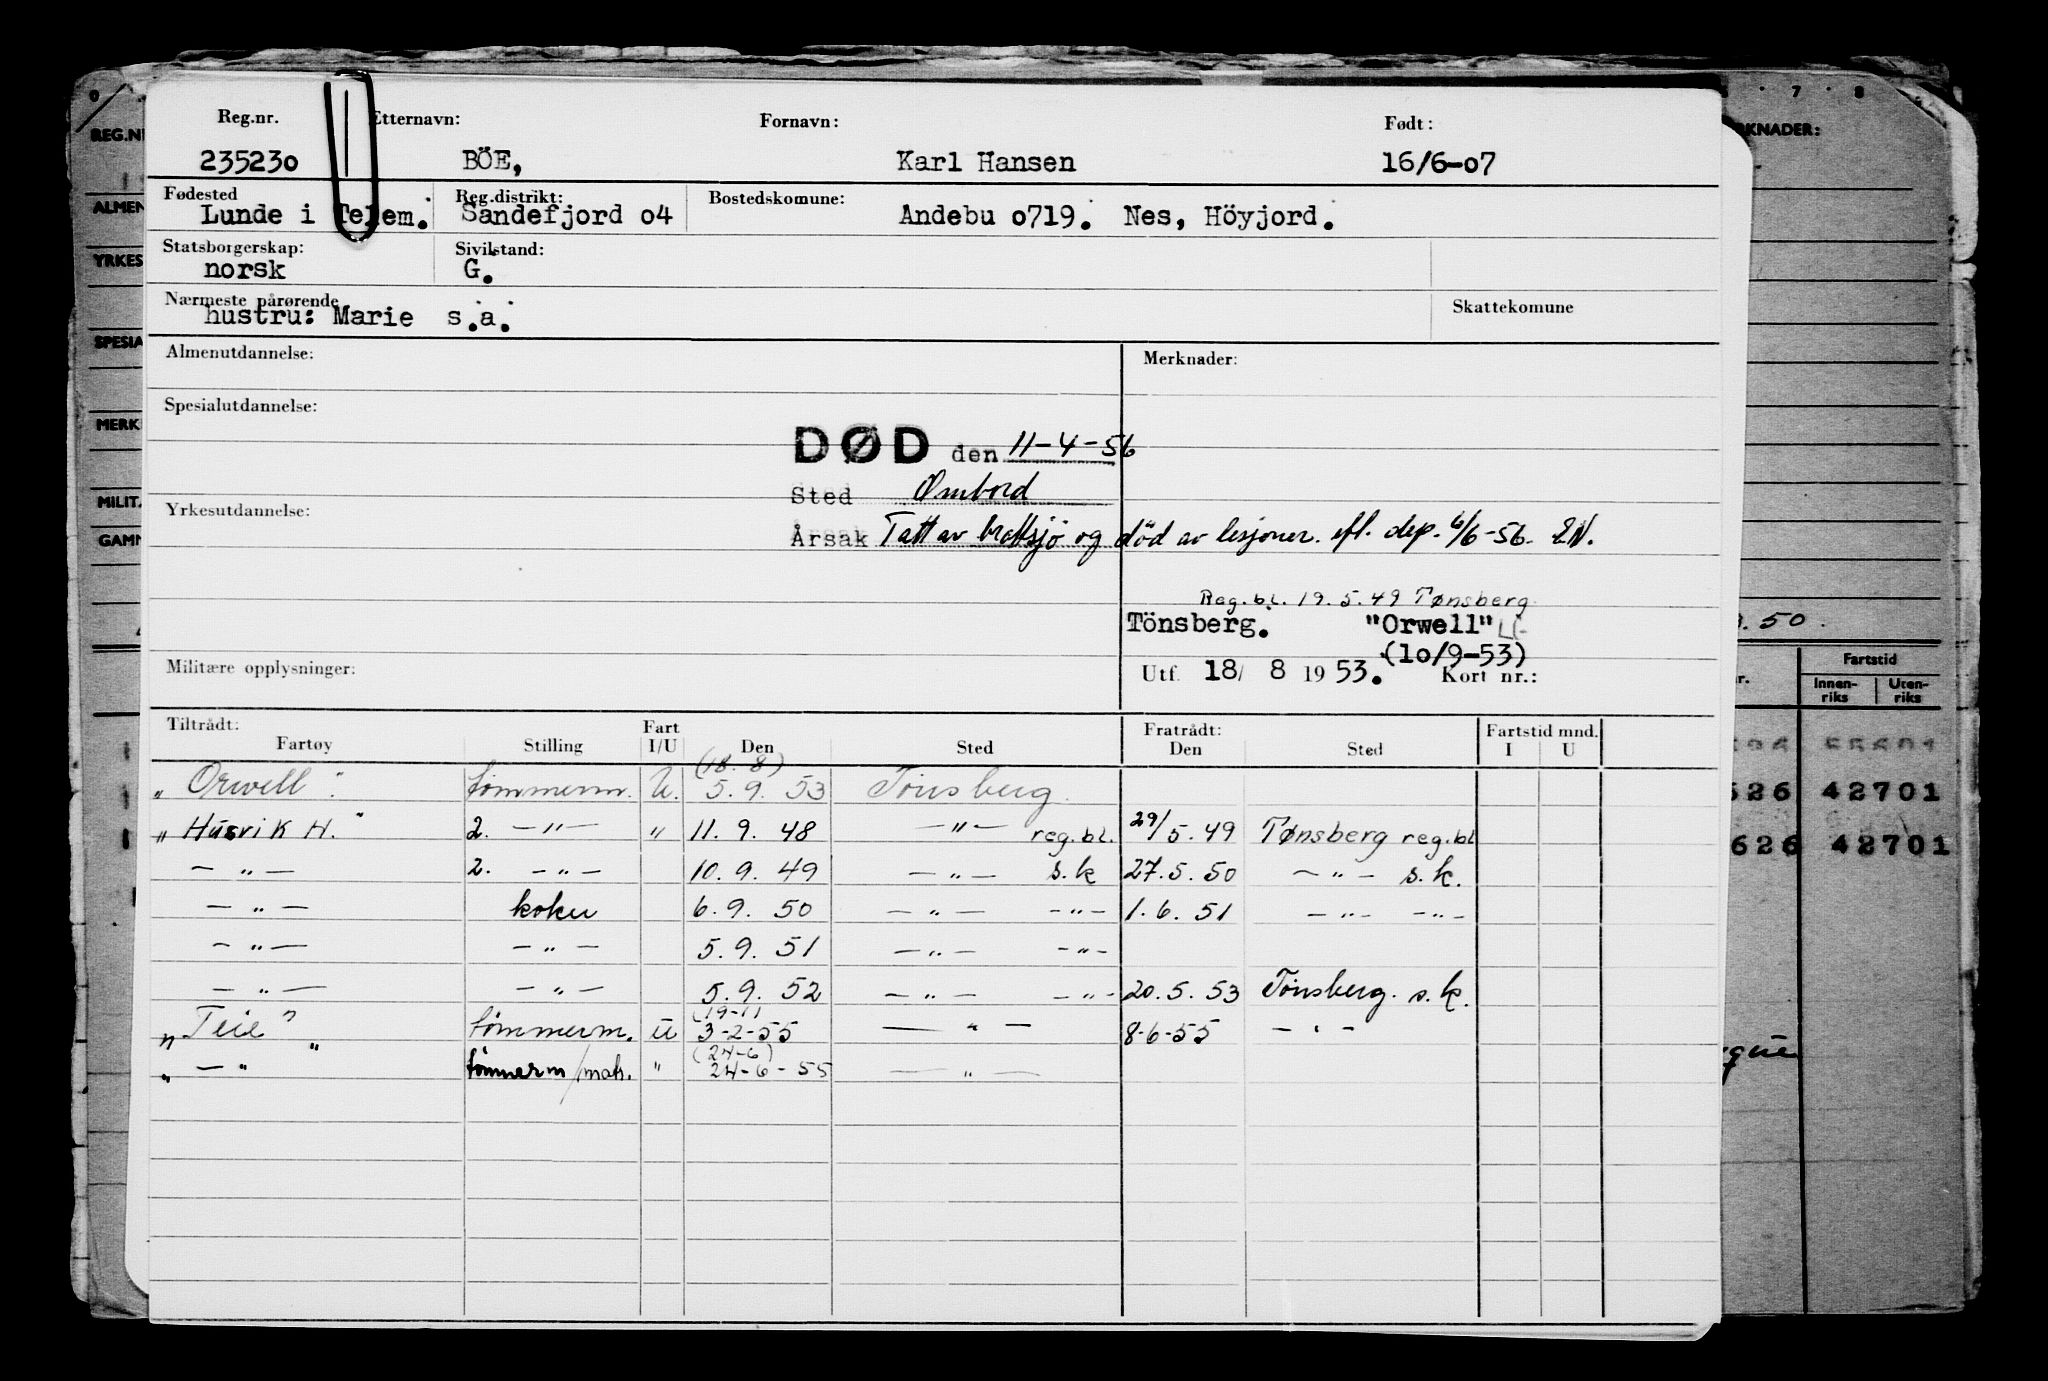 Reg.nr. Etternavn: Fornavn: Født:
235230 BÖE, Karl Hansen 16/6-o7
Fødested Reg.distrikt: Bostedskomune:
Lunde i Telem. Sandefjord o4 Andebu o719. Nes, Höyjord.
Statsborgerskap: Sivilstand:
norsk G.
Nærmeste pårørende Skattekomune
hustru: Marie s.a.
Almenutdannelse: Merknader:
Spesialutdannelse:
DØD den 11-4-56
Sted Ombord
Yrkesutdannelse:
Årsak Tatt av brottsjö og död av lesjoner. efl. dep. 6/6-56. EN.
Reg.bl. 19.5.49 Tønsberg
Tönsberg. "Orwell"
(1o/9-53)
Militære opplysninger: Utf. 18/ 8 1953. Kort nr.:
Tiltrådt: Fart Fratrådt: Fartstid mnd.
Fartøy Stilling I/U Den Sted Den Sted I U
(18.8)
"Orwell" tömmerm. U. 5.9.53 Tönsberg
"Husvik H." 2. -"- " 11.9.48 -"- reg.bl. 29/5.49 Tønsberg reg.bl
-"- 2. -"- 10.9.49 -"- s.k 27.5.50 -"- s.k.
-"- koker 6.9.50 -"- -"- 1.6.51 -"- -"-
-"- -"- 5.9.51 -"- -"-
-"- -"- 5.9.52 -"- -"- 20.5.53 Tönsberg. s.k.
(19-11
"Teie" tömmerm. U 3-2-55 -"- 8-6-55 -"-
(24-6)
" -"- tömmerm/mats. " 24-6-55 -"-
0 7 8
REG.N
KNADER:
ALMEN
YRKES
SPESIA
MERK
MILIT.
GAMM
.50.
r. Fartstid
Innen-riks Uten-riks
55601
526 42701
626 42701